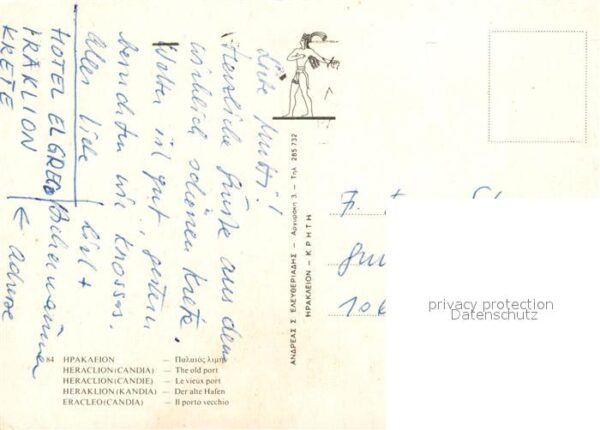 Liebe Mutti!
Herzliche Grüße aus dem
wirklich schönen Kreta.
Wetter ist gut, gestern
besuchten wir Knossos.
Alles Liebe
HOTEL EL GRECO
IRAKLION
KRETE
← Adresse
ΑΝΔΡΕΑΣ Σ ΕΛΕΥΘΕΡΙΑΔΗΣ — Αργυράκη 3. — Τηλ 285 732
ΗΡΑΚΛΕΙΟΝ - ΚΡΗΤΗ
106
privacy protection
Datenschutz
84 ΗΡΑΚΛΕΙΟΝ — Παλαιός λιμήν
HERACLION (CANDIA) — The old port
HERACLION (CANDIE) — Le vieux port
HERAKLION (KANDIA) — Der alte Hafen
ERACLEO (CANDIA) — Il porto vecchio